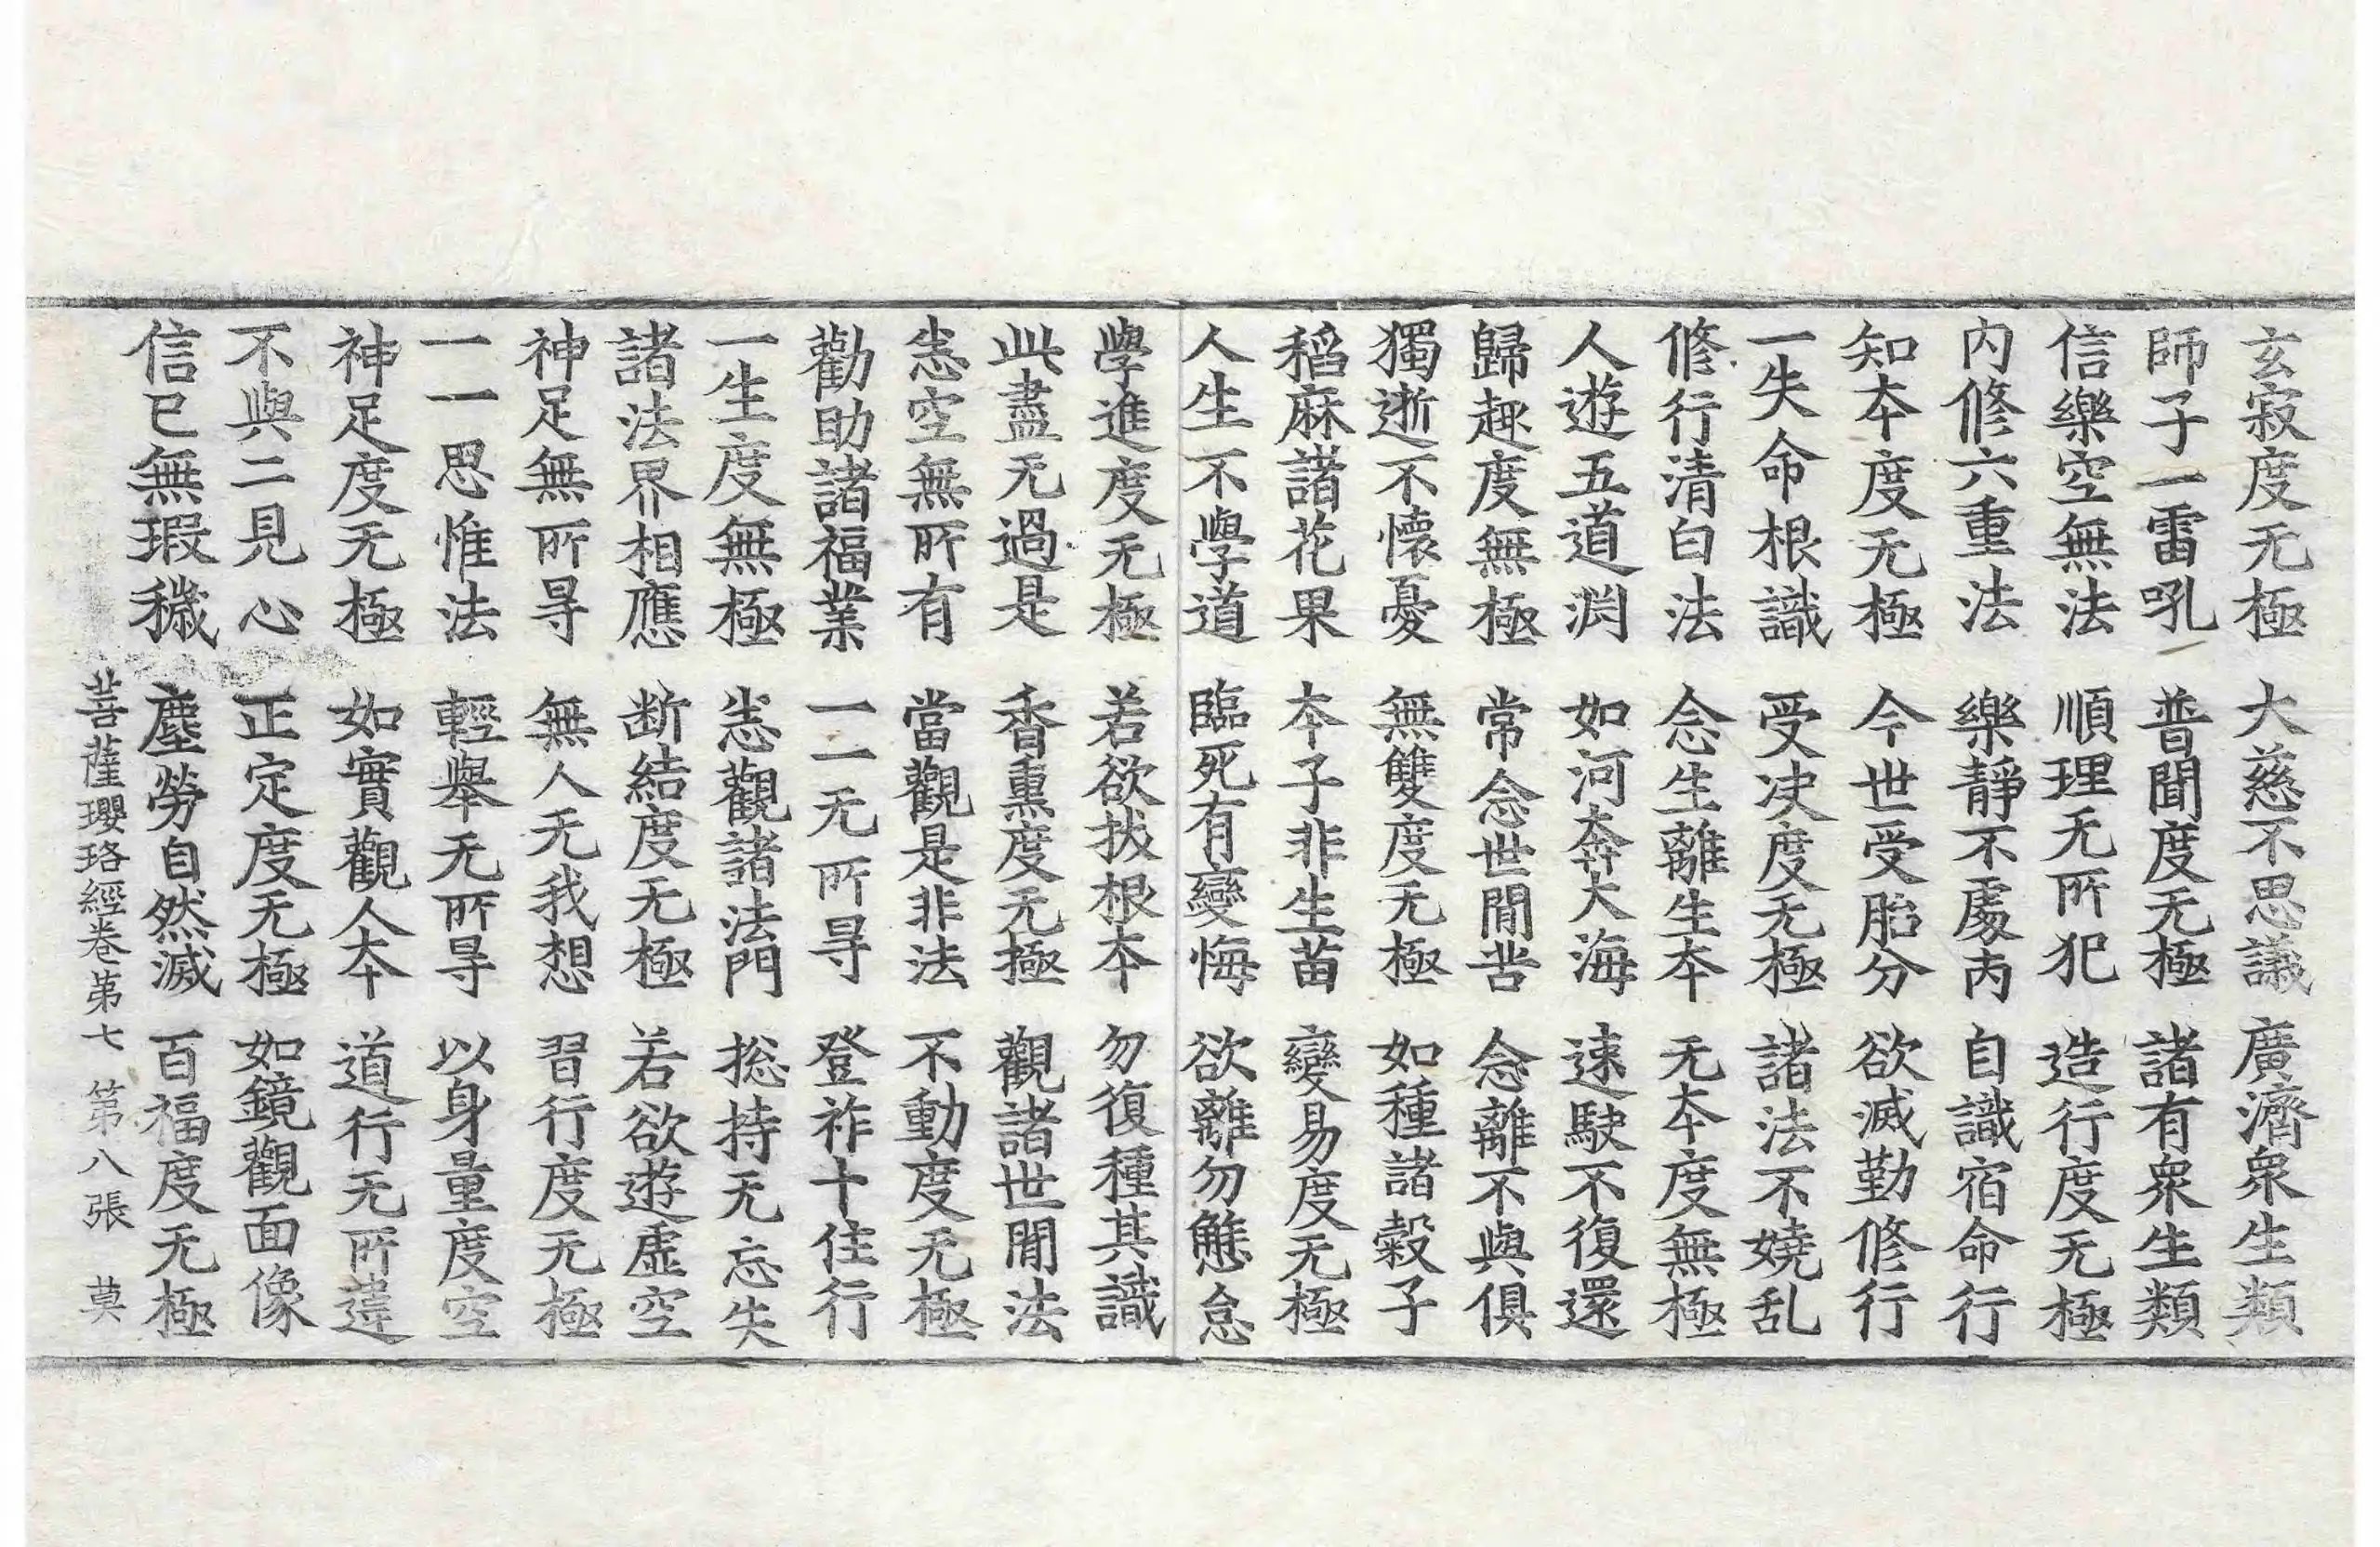 玄寂度无極 大慈不思議 廣濟衆生類
師子一雷吼 普聞度无極 諸有衆生類
信樂空無法 順理无所犯 造行度无極
内修六重法 樂靜不處內 自識宿命行
知夲度无極 今世受胎分 欲滅勤修行
一失命根識 受决度无極 諸法不嬈乱
修行清白法 念生離生夲 无夲度無極
人遊五道渕 如河奔大海 速駛不復還
歸趣度無極 常念世間苦 念離不與俱
獨逝不懷憂 無雙度无極 如種諸穀子
稻麻諸花果 夲子非生苗 變易度无極
人生不學道 臨死有變悔 欲離勿懈怠
學進度无極 若欲拔根夲 勿復種其識
此盡无過是 香熏度无極 觀諸世間法
悉空無所有 當觀是非法 不動度无極
勸助諸福業 一一无所㝵 登祚十住行
一生度無極 悉觀諸法門 捴持无忘失
諸法界相應 断結度无極 若欲遊虛空
神足無所㝵 無人无我想 習行度无極
一一思惟法 輕舉无所㝵 以身量度空
神足度无極 如實觀人夲 道行无所違
不與二見心 正定度无極 如鏡觀面像
信已無瑕穢 塵勞自然滅 百福度无極
菩薩瓔珞經卷第七 第八張 莫